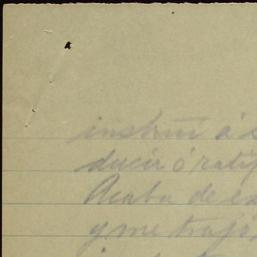 instruí á s
ducir ó ratif
Acaba de es
y me trajo,